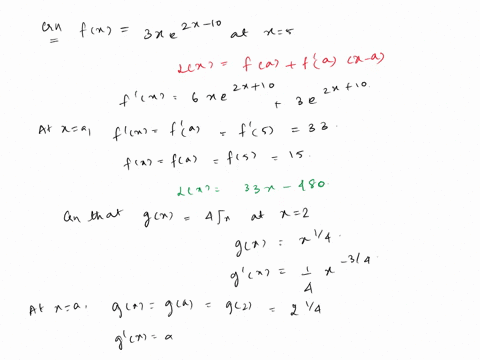 Gn f(x) = 3x e^{2x-10} at x=5
L(x) = f(a) + f'(a) (x-a)
f'(x) = 6x e^{2x+10} + 3e^{2x+10}.
At x=a, f'(x) = f'(a) = f'(5) = 33.
f(x) = f(a) = f(5) = 15.
L(x) = 33x - 480.
Gn that g(x) = 4√x at x=2
g(x) = x^{1/4}
g'(x) = 1/4 x^{-3/4}.
At x=a, g(x) = g(a) = g(2) = 2^{1/4}
g'(x) = a